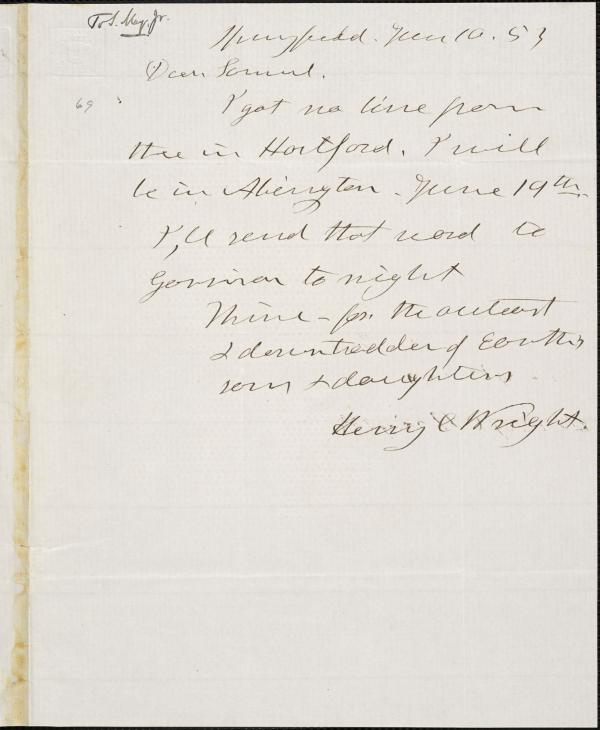 To S. May, Jr.
Springfield. June 10. 53
Dear Samuel.
69
I got no line from
thee in Hartford. I will
be in Abington. June 19th.
I'll send that word to
to night
Thine - for the outcast
& downtrodden of Earth's
sons & daughters
Henry C Wright.